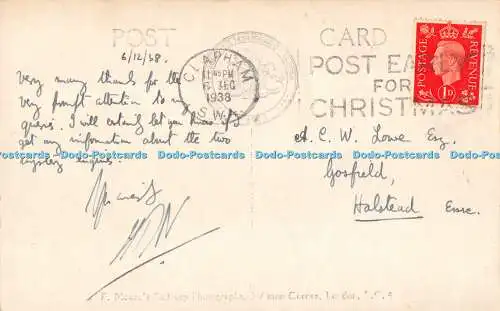 POST
CARD
6/12/38.
CLAPHAM
PM
DEC
1938
S.W.
POST EA
FOR
CHRISTMAS
POSTAGE
REVENUE
1D
Very many thanks for the
very prompt attention to my
queries. I will certainly let you know if I
get any information about the two
mystery engines.
A. C. W. Lowe Esq.
Gosfield,
Halstead Essex.
Dodo-Postcards Dodo-Postcards Dodo-Postcards Dodo-Postcards Dodo-Postcards
F. Moore's Railway Photographs, London, E.C.